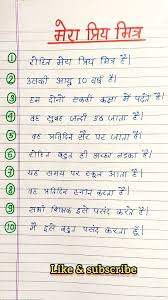 मेरा प्रिय मित्र
1 रोहित मेरा प्रिय मित्र है।
2 उसकी आयु 10 वर्ष है।
3 हम दोनों एक ही कक्षा में पढ़ते है।
4 वह सुबह जल्दी उठ जाता है।
5 वह प्रतिदिन सैर पर जाता है।
6 रोहित बहुत ही अच्छा लड़का है।
7 वह समय पर स्कूल आता है।
8 वह प्रतिदिन स्नान करता है।
9 सभी शिक्षक इसे पसंद करते है।
10 मैं इसे बहुत पसंद करता हूँ।
Like & subscribe